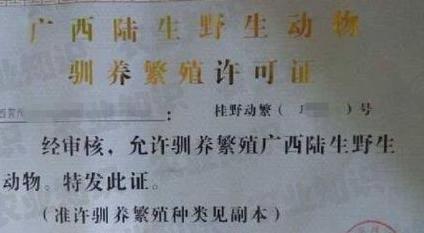 广西陆生野生动物
驯养繁殖许可证
： 桂野动繁（ ）号
经审核，允许驯养繁殖广西陆生野生
动物。特发此证。
（准许驯养繁殖种类见副本）